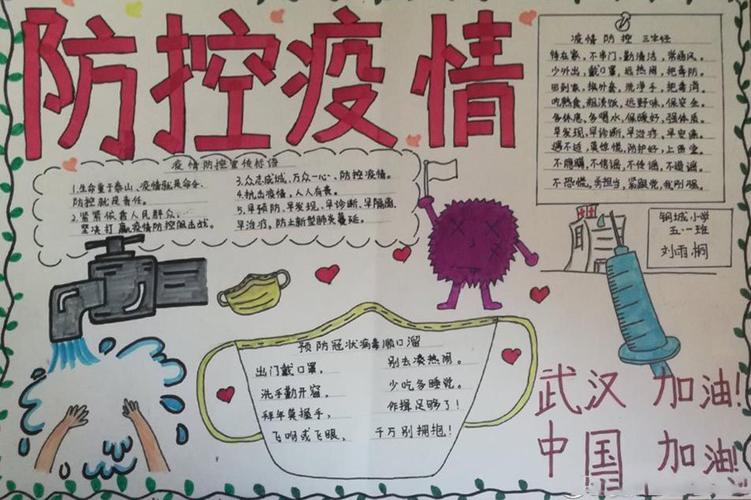 防控疫情
疫情防控宣传标语
1.生命重于泰山,疫情就是命令,
防控就是责任。
2.紧紧依靠人民群众,
坚决打赢疫情防控阻击战。
3.众志成城,万众一心、防控疫情。
4.抗击疫情,人人有责。
5.早预防、早发现、早诊断、早隔离、
早治疗,防止新型肺炎蔓延。
疫情防控 三字经
待在家,不串门,勤清洁,常通风。
少外出,戴口罩,远热闹,把毒防。
回到家,换外套,洗净手,把毒消。
吃熟食,粗淡饭,远野味,保安全。
多休息,多喝水,保暖好,强体质。
早发现,早诊断,早治疗,早安康。
遇不适,莫惊慌,防护好,上医堂。
不瞒瞒,不信谣,不传谣,不造谣。
不恐慌,共担当,紧跟党,我刚强。
钢城小学
五·一班
刘雨桐
预防冠状病毒顺口溜
出门戴口罩,
洗手勤开窗。
拜年莫握手,
飞吻或飞眼,
别去凑热闹。
少吃多睡觉。
作揖足够了!
千万别拥抱!
武汉 加油!
中国 加油!